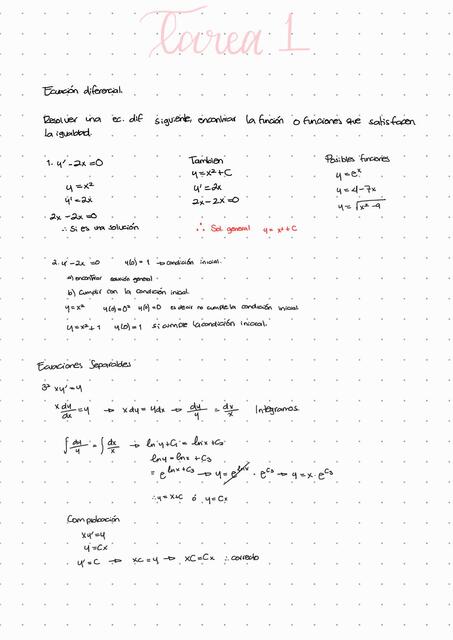 Tarea 1
Ecuación diferencial.
Resolver una ec. dif siguiente, encontrar la función o funciones que satisfacen
la igualdad.
1. y' - 2x = 0
y = x²
y' = 2x
2x - 2x = 0
∴ Si es una solución
También
y = x² + C
y' = 2x
2x - 2x = 0
∴ Sol general y = x² + C
Posibles funciones
y = eˣ
y = 4 - 7x
y = √(x² - 9)
2. y' - 2x = 0 y(0) = 1 → condición inicial.
a) encontrar solución general
b) Cumplir con la condición inicial.
y = x² y(0) = 0² y(0) = 0 es decir no cumple la condición inicial
y = x² + 1 y(0) = 1 si cumple la condición inicial.
Ecuaciones Separables
3. xy' = y
x dy/dx = y → x dy = y dx → dy/y = dx/x Integramos
∫ dy/y = ∫ dx/x → ln y + C₁ = ln x + C₂
ln y = ln x + C₃
= e^(ln x + C₃) → y = e^(ln x) · e^(C₃) → y = x · e^(C₃)
∴ y = x+C ó y = Cx
Comprobación
xy' = y
y = Cx
y' = C → xC = y → xC = Cx ∴ correcto